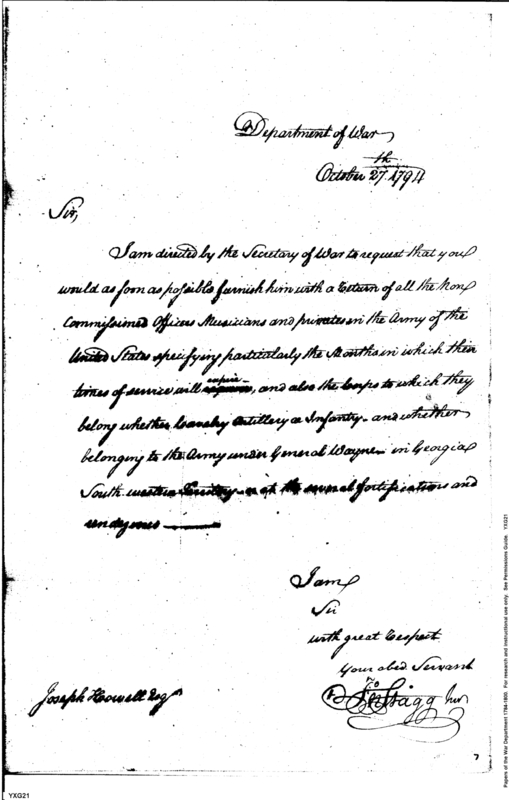 Department of War
October 27th 1794
Sir,
I am directed by the Secretary of War to request that you
would as soon as possible furnish him with a Return of all the Non
Commissioned Officers Musicians and privates in the Army of the
United States specifying particularly the Months in which their
times of service will expire, and also the Corps to which they
belong whether Cavalry Artillery or Infantry - and whether
belonging to the Army under General Wayne - in Georgia
South western Territory - or at the several fortifications and
rendezvous
I am
Sir
with great Respect
Your obed Servant
Jno Stagg Junr
Joseph Howell Esqr
7
YXG21
Papers of the War Department 1784-1800. For research and instructional use only. See Permissions Guide. YXG21